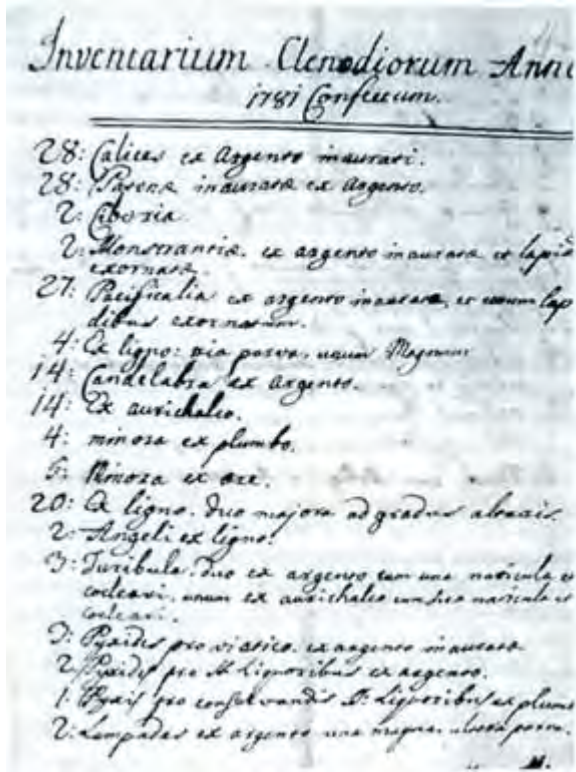 Inventarium Clenodiorum Anni
1781 Confectum.
28: Calices ex Argento inaurati.
28: Patenæ inauratæ ex Argento.
2: Ciboria
2: Monstrantiæ, ex argento inauratæ et lapid
exornatæ.
27: Pacificalia ex argento inaurata, et unum lap
dibus exornatum.
4: Ex ligno: tria parva, unum Magnum
14: Candelabra ex Argento.
14: Ex aurichalco.
4: minora ex plumbo.
5: Minora ex ære.
20: Ex ligno. duo majora ad gradus altaris.
2: Angeli ex ligno.
3: Turibula, duo ex argento cum una navicula et
cocleari, unum ex aurichalco cum sua navicula et
cocleari.
3: Pyxides pro viatico, ex argento inaurata.
2: Pyxides pro Liquoribus ex argento.
1: Pyxis pro conservandis Liquoribus ex plum
2: Lampades ex argento una magna, altera parva.